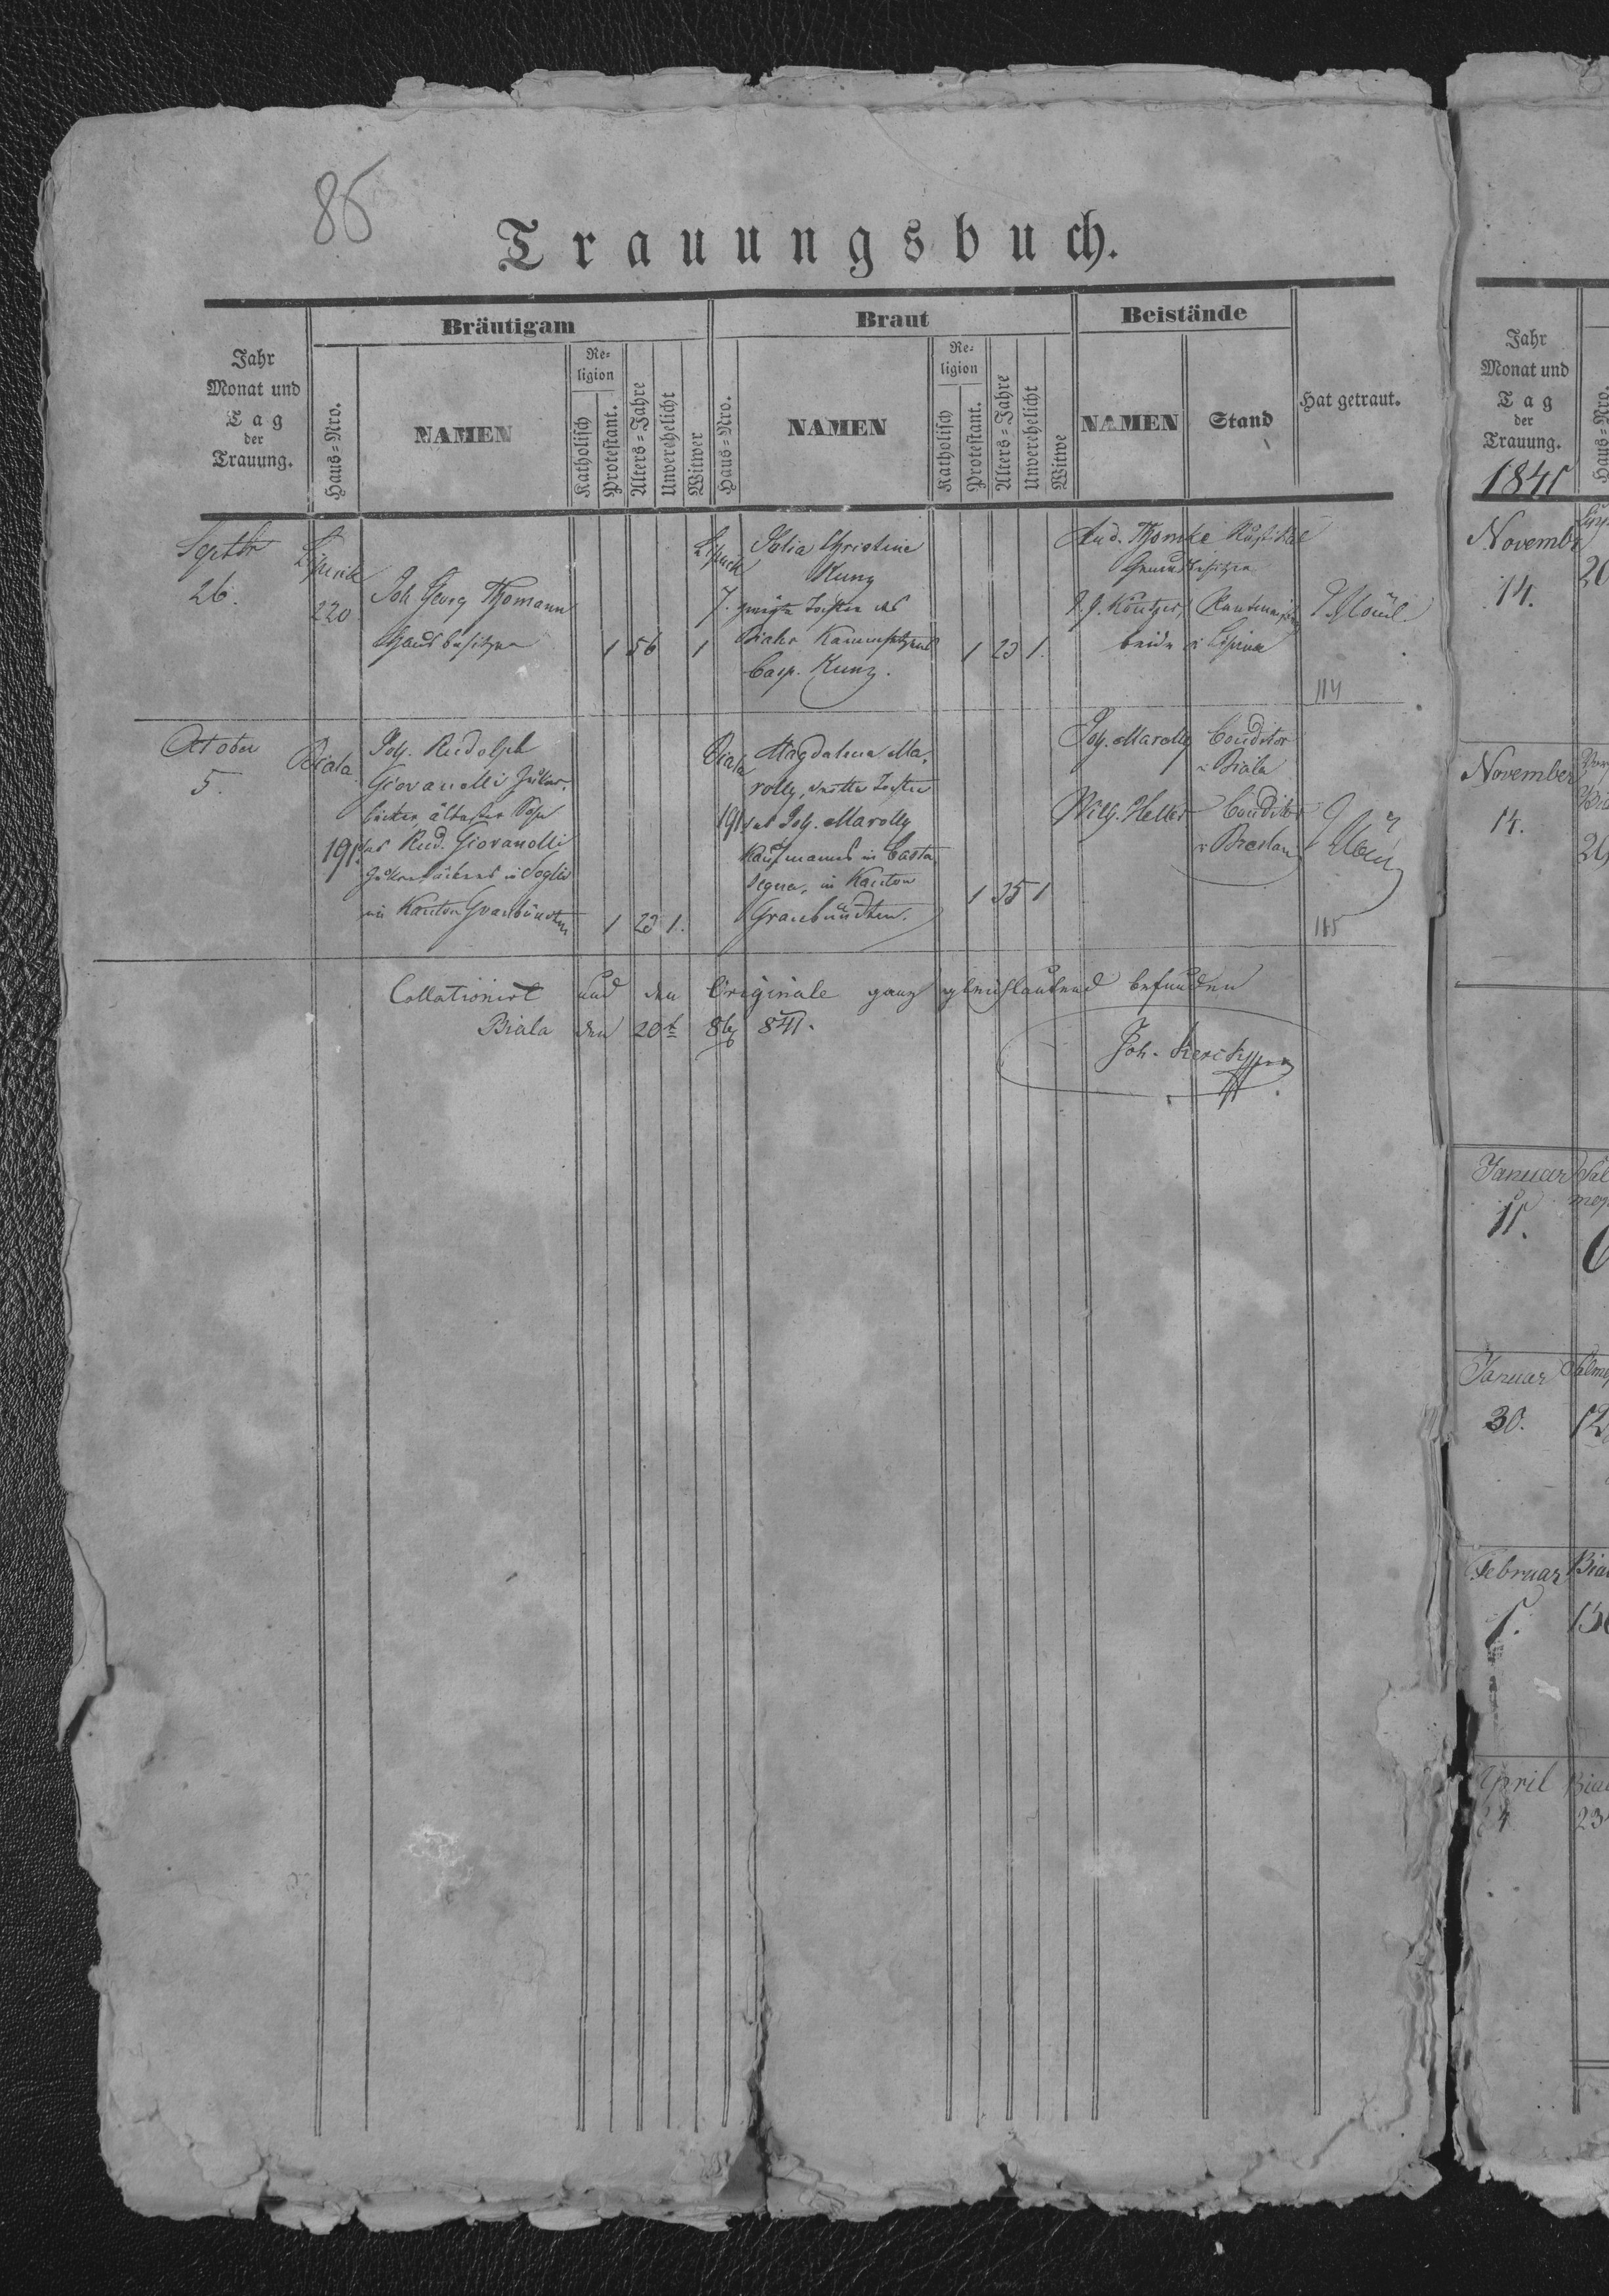 86
Trauungsbuch.
Jahr
Monat und
Tag
der
Trauung.
Bräutigam
Haus-Nro.
NAMEN
Religion
Katholisch
Protestant.
Alters-Jahre
Unverehelicht
Witwer
Braut
Haus-Nro.
NAMEN
Religion
Katholisch
Protestant.
Alters-Jahre
Unverehelicht
Witwe
Beistände
NAMEN
Stand
Hat getraut.
Septbr
26.
Lipnik
220
Joh. Georg Thomann
Hausbesitzer
1 56 1
Lipnik
7.
Julia Christine
Kunz
zweite Tochter des
Bialer
Casp. Kunz.
1 23 1.
And. Thomke
Grundbesitzer
beide
114
October
5.
Biala
191
Joh. Rudolph
Giovanolli Zuker-
bäcker ältester Sohn
des Rud. Giovanolli
Zukerbäckers in Soglio
im Kanton Graubündten
1 23 1.
Biala
191
Magdalena Ma-
rolly, dritte Tochter
des Joh. Marolly
Kaufmanns in Casta
segna, im Kanton
Graubündten.
1 25 1
Joh. Marolly Conditor
in Biala
Wilh. Heller Conditor
in Breslau
115
Collationirt und dem Originale ganz gleichlautend befunden
Biala den 20t 8br 841.
Joh.
Jahr
Monat und
Tag
der
Trauung.
1841
Haus-Nro.
Novembr
14.
20
November
14.
29
Januar
11.
Januar
30.
12
Februar
1.
April
4
23